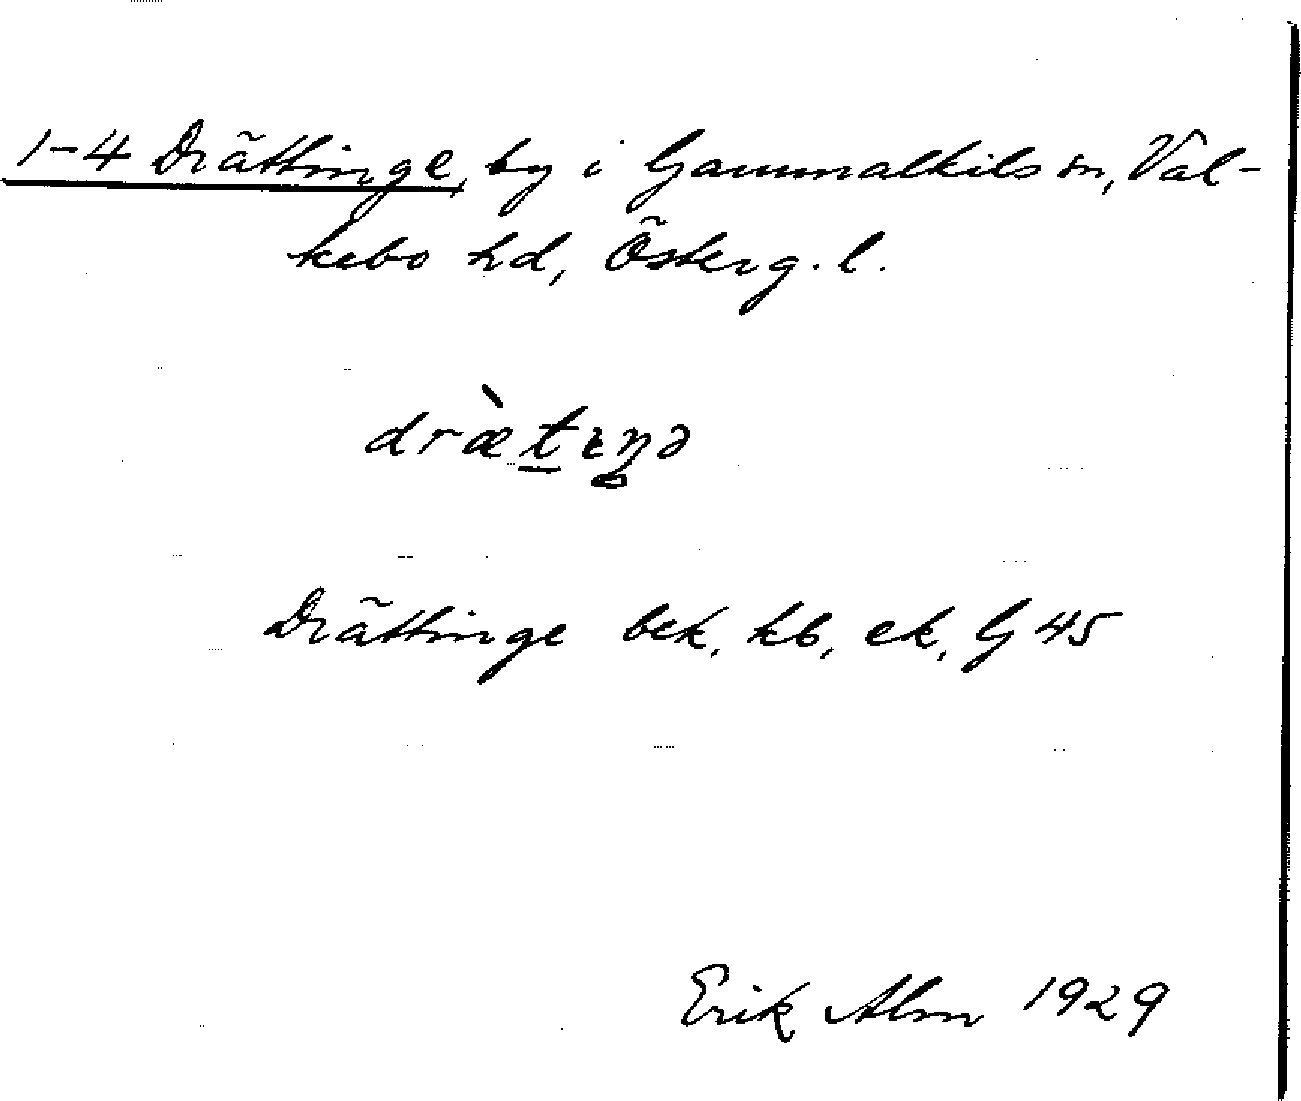 1-4 Drättinge, by i Gammalkils sn, Val-
kebo hd, Österg. l.
dræ̀t̲ɪŋə
Drättinge bek, kb, ek, G 45
Erik Alm 1929